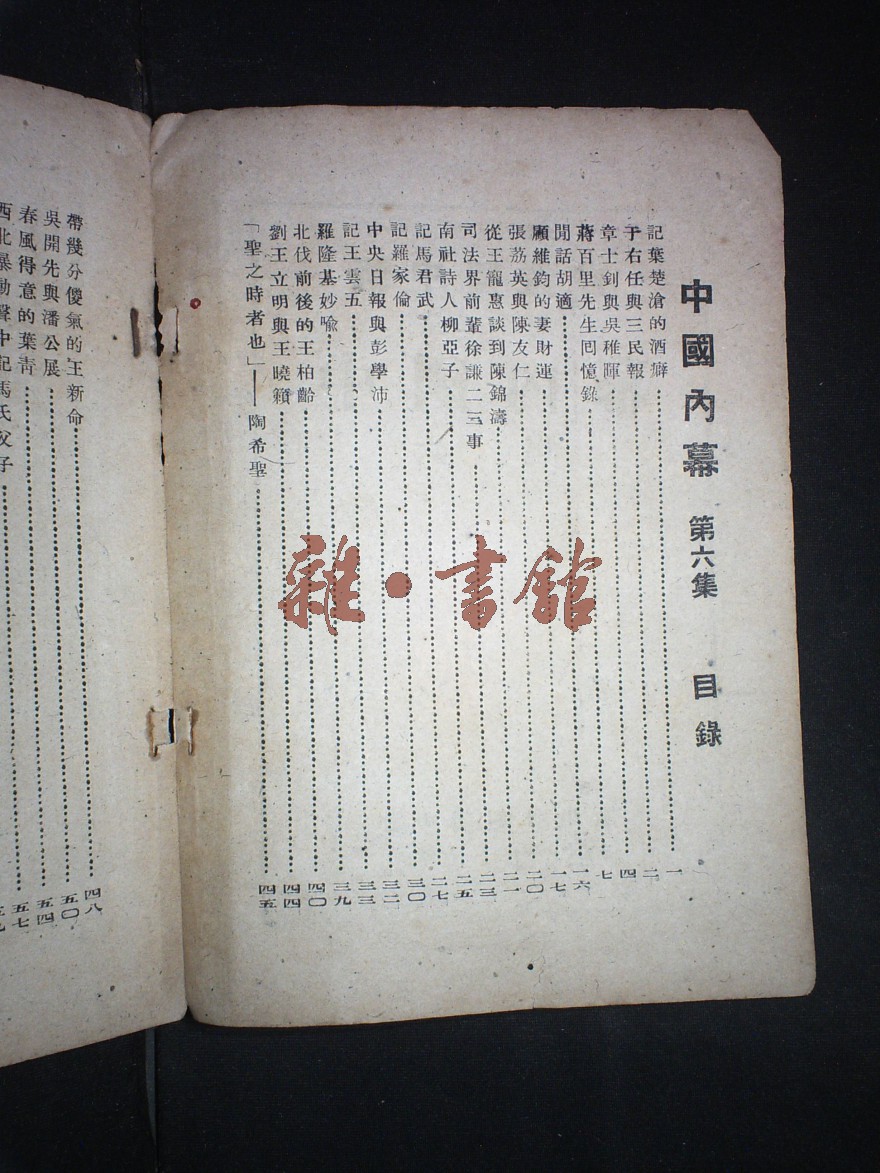 中國內幕 第六集 目錄
記葉楚滄的酒癖 一
于右任與三民報 二
章士釗與吳稚暉 四
蔣百里先生囘憶錄 七
閒話胡適 一六
顧維鈞的妻財運 一七
張荔英與陳友仁 二〇
從王寵惠談到陳錦濤 二一
司法界前輩徐謙二三事 二三
南社詩人柳亞子 二五
記馬君武 二七
記羅家倫 三〇
中央日報與彭學沛 三二
記王雲五 三三
羅隆基妙喻 三九
北伐前後的王柏齡 四〇
劉王立明與王曉籟 四四
「聖之時者也」——陶希聖 四五
帶幾分傻氣的王新命 四八
吳開先與潘公展 五〇
春風得意的葉青 五四
西北暴動聲中記馬氏父子 五七
雜·書館